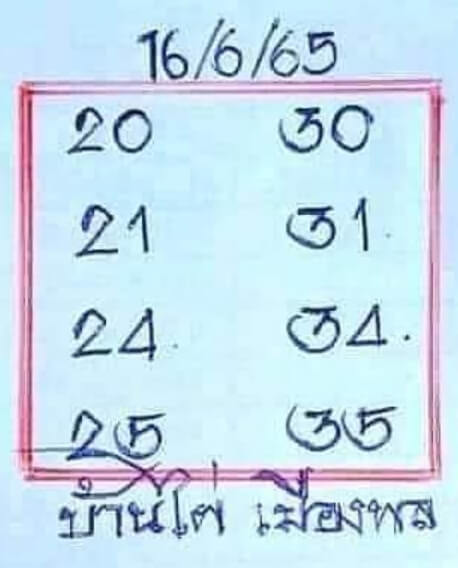 16/6/65
20 30
21 31
24 34
25 35
บ้านไผ่ เมืองพล